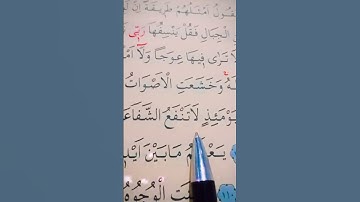 اَمْثَلُهُمْ طَر۪يقَةً
الْجِبَالِ فَقُلْ يَنْسِفُهَا رَبّ۪ى
لَا تَرٰى ف۪يهَا عِوَجًا وَلَٓا
وَخَشَعَتِ الْاَصْوَاتُ
يَوْمَئِذٍ لَاتَنْفَعُ الشَّفَاعَ
يَعْلَمُ مَابَيْنَ
الْوُجُوهُ